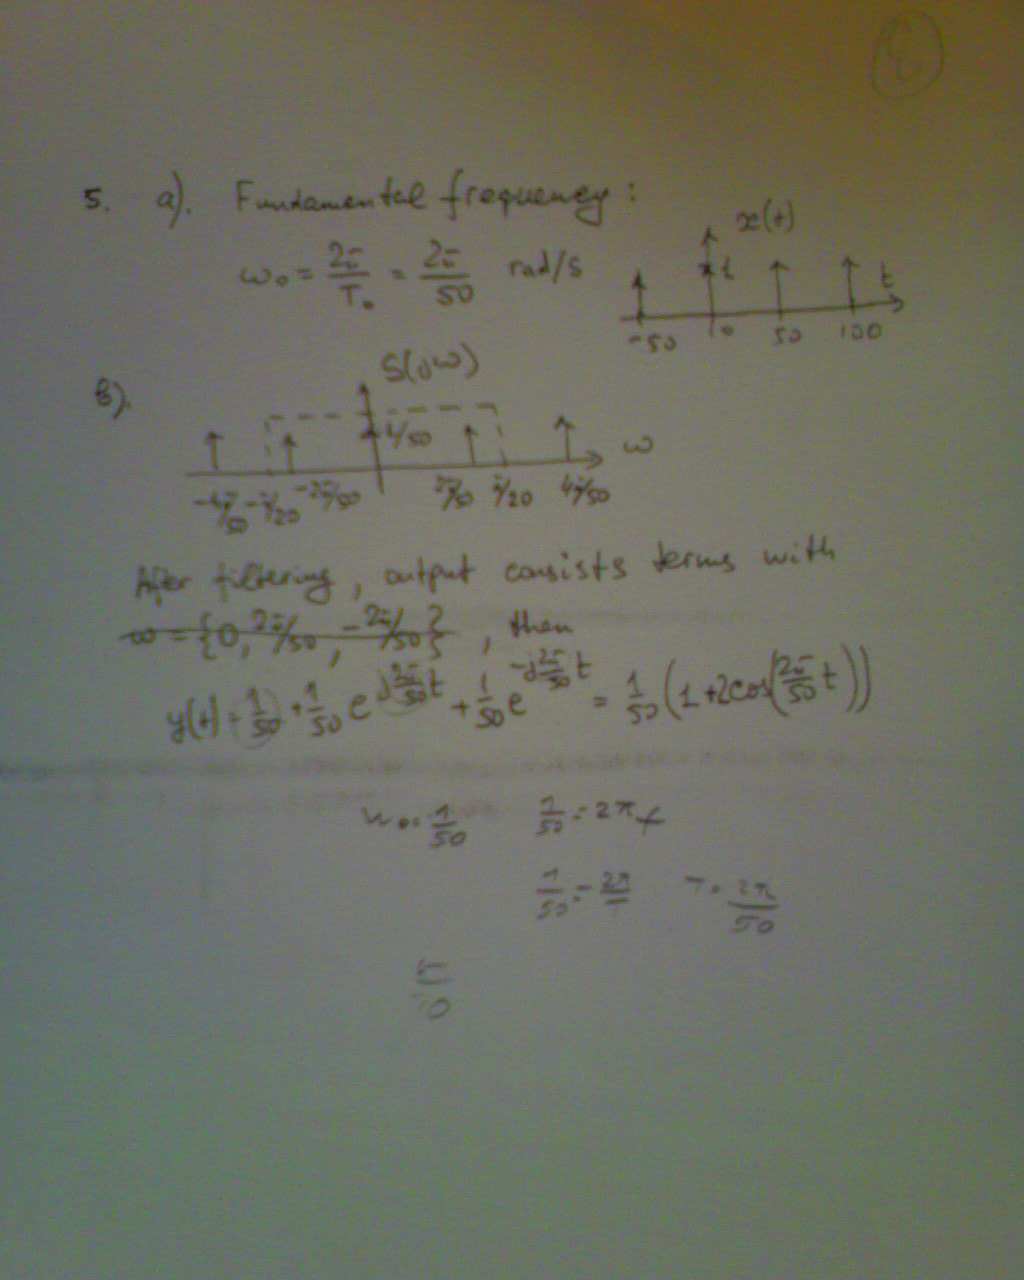 8
5. a). Fundamental frequency:
x(t)
ω₀ = 2π/T₀ = 2π/50 rad/s
1
t
-50 0 50 100
b).
S(jω)
1/50
ω
-4π/50 -π/20 -2π/50 2π/50 π/20 4π/50
After filtering, output consists terms with
ω = {0, 2π/50, -2π/50}, then
y(t) = 1/50 + 1/50 e^(j 2π/50 t) + 1/50 e^(-j 2π/50 t) = 1/50 (1 + 2cos(2π/50 t))
W₀ = 1/50 1/50 = 2π f
1/50 = 2π/T T = 2π/50